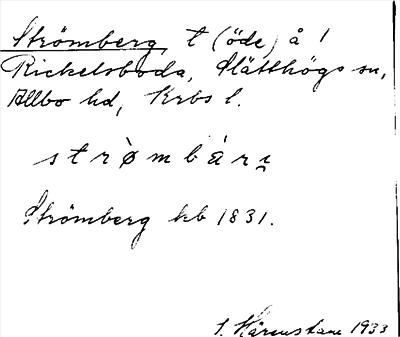 Strömberg, t (öde) å 1
Rickelsboda, Slätthögs sn,
Allbo hd, Krbs l.
strömbárı̯
Strömberg kb 1831.
1933